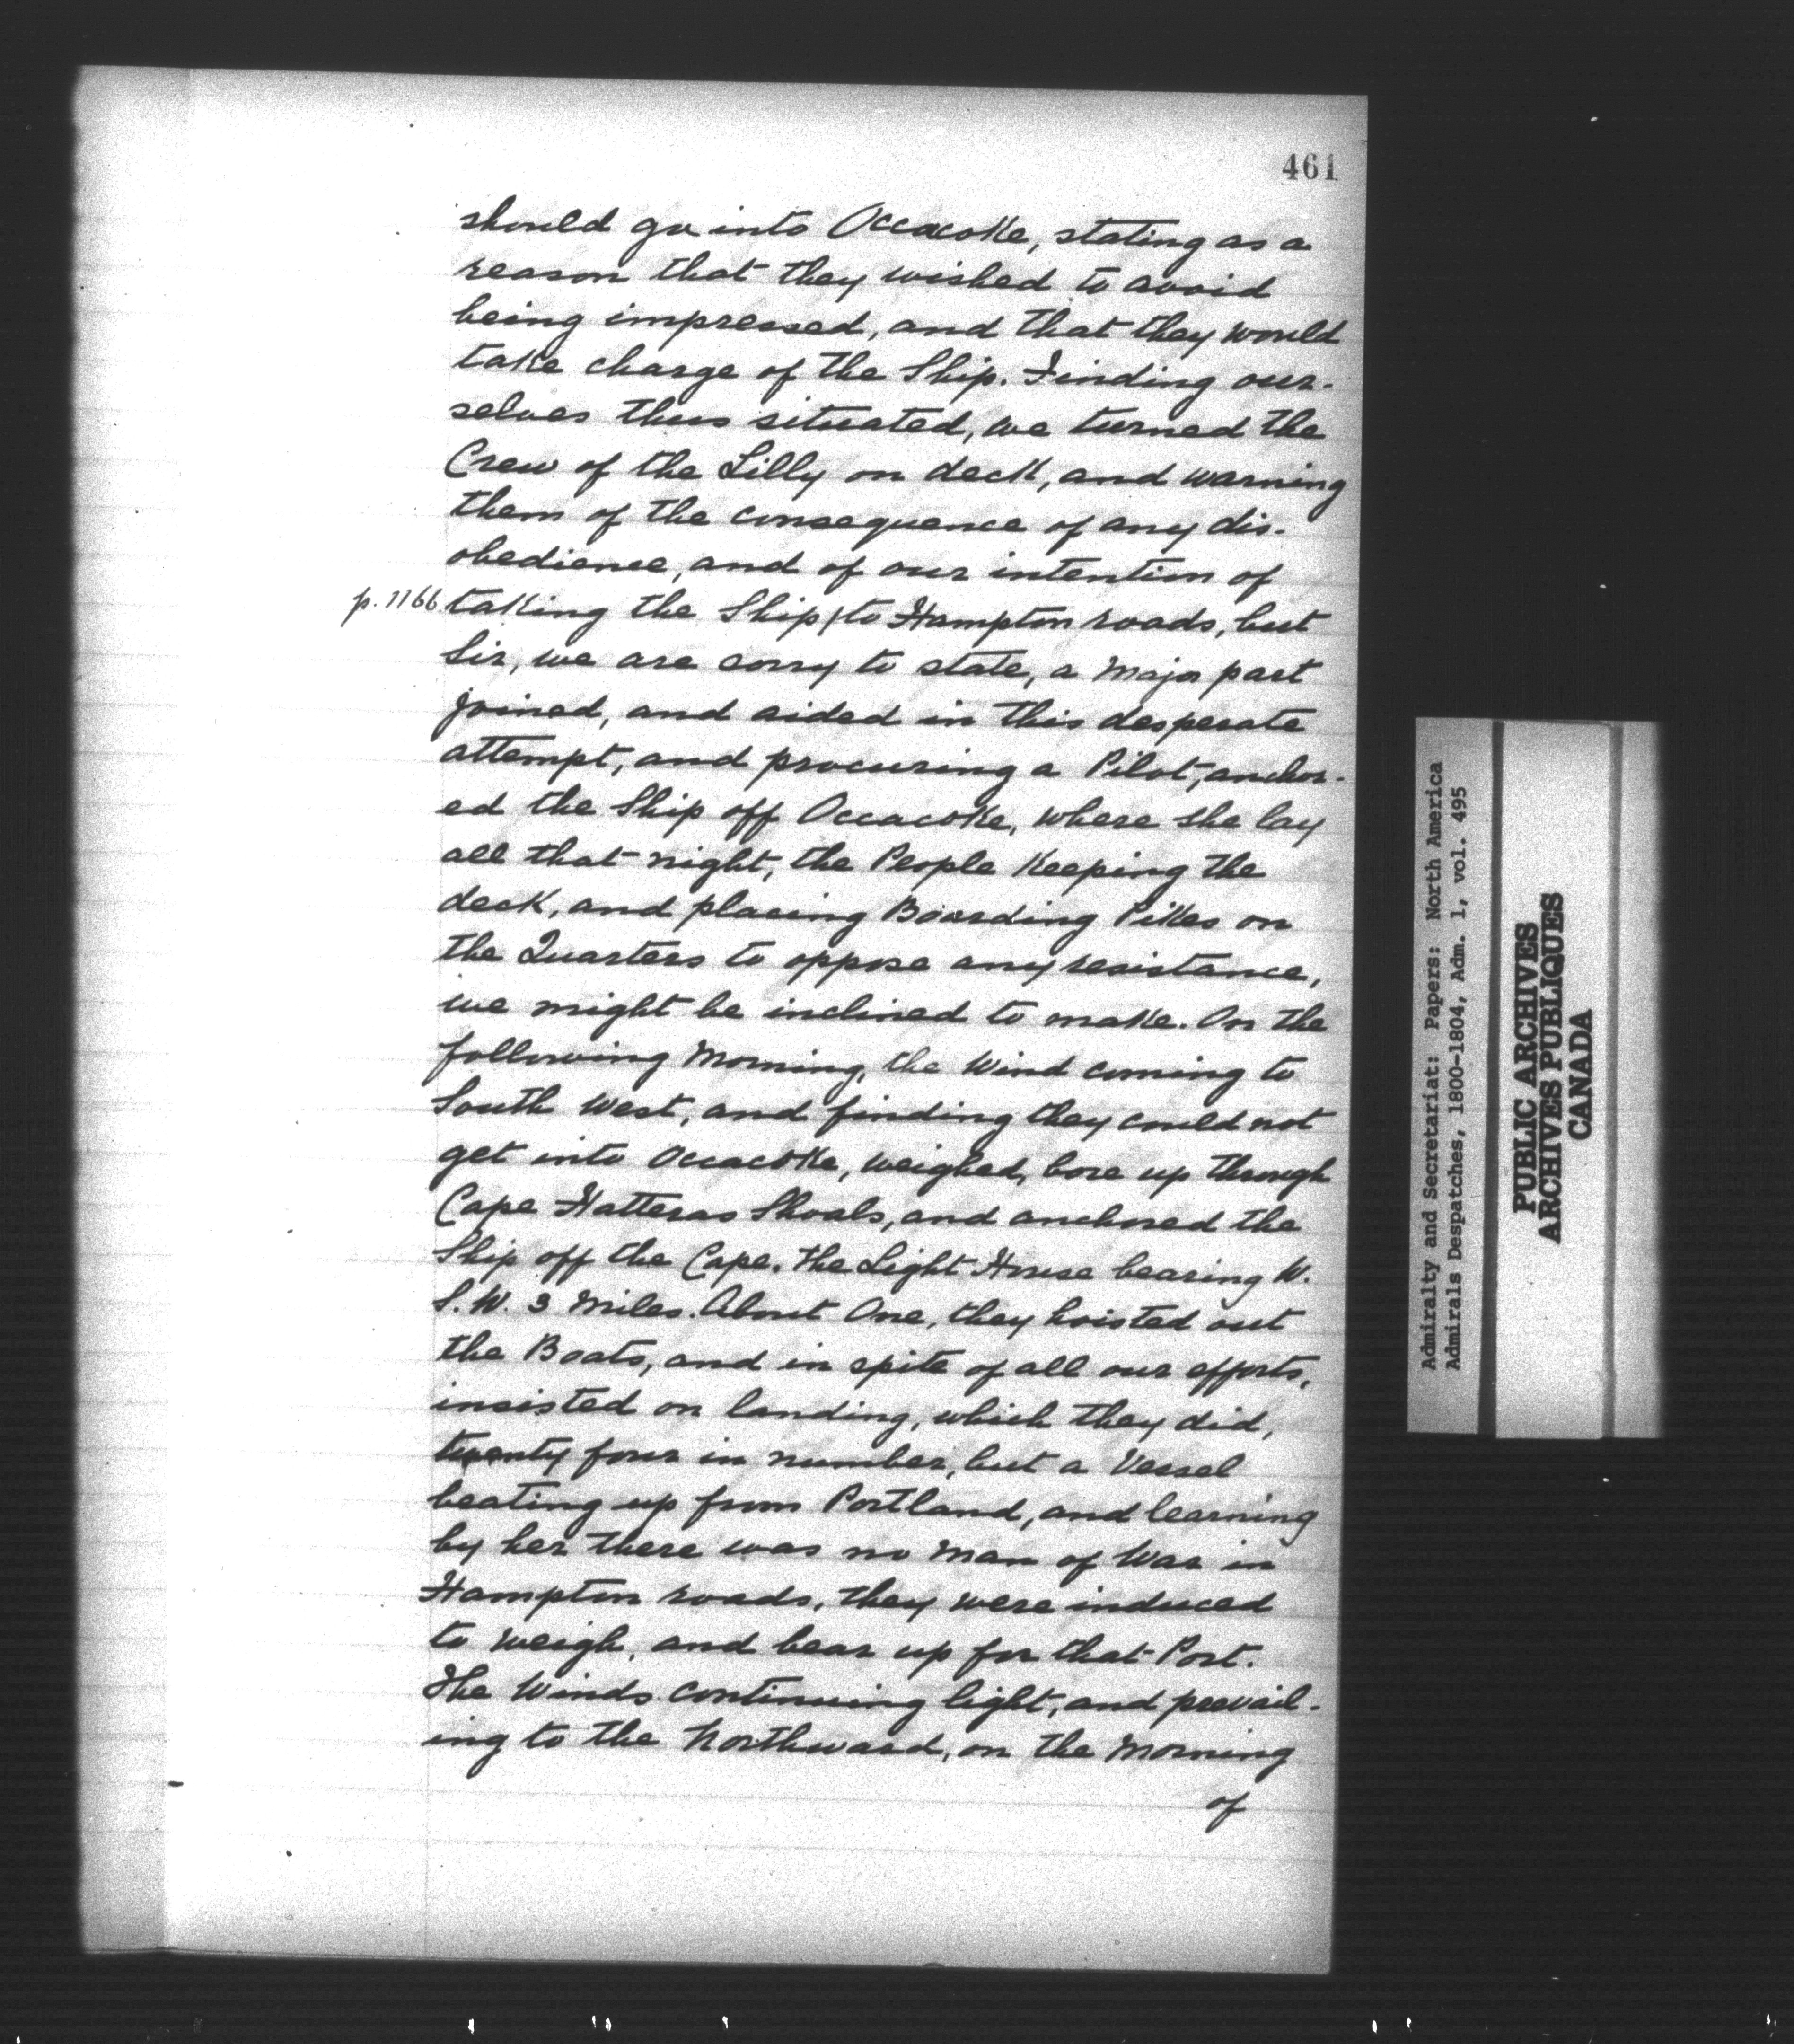 461
should go into Occacoke, stating as a
reason that they wished to avoid
being impressed, and that they would
take charge of the Ship. Finding our-
selves thus situated, we turned the
Crew of the Lilly on deck, and warning
them of the consequence of any dis-
obedience, and of our intention of
p. 1166 taking the Ship/to Hampton roads, but
Sir, we are sorry to state, a Major part
joined, and aided in this desperate
attempt, and procuring a Pilot, anchor-
ed the Ship off Occacoke, where she lay
all that night, the People Keeping the
deck, and placing Boarding Pikes on
the Quarters to oppose any resistance,
we might be inclined to make. On the
following Morning, the Wind coming to
South West, and finding they could not
get into Occacoke, weighed, bore up through
Cape Hatteras Shoals, and anchored the
Ship off the Cape. the Light House bearing W.
S.W. 3 Miles. About One, they hoisted out
the Boats, and in spite of all our efforts,
insisted on landing, which they did,
twenty four in number, but a Vessel
beating up from Portland, and learning
by her there was no Man of War in
Hampton roads, they were induced
to weigh, and bear up for that Port.
The Winds continuing light, and prevail-
ing to the Northward, on the Morning
of
Admiralty and Secretariat: Papers: North America
Admirals Despatches, 1800-1804, Adm. 1, vol. 495
PUBLIC ARCHIVES
ARCHIVES PUBLIQUES
CANADA